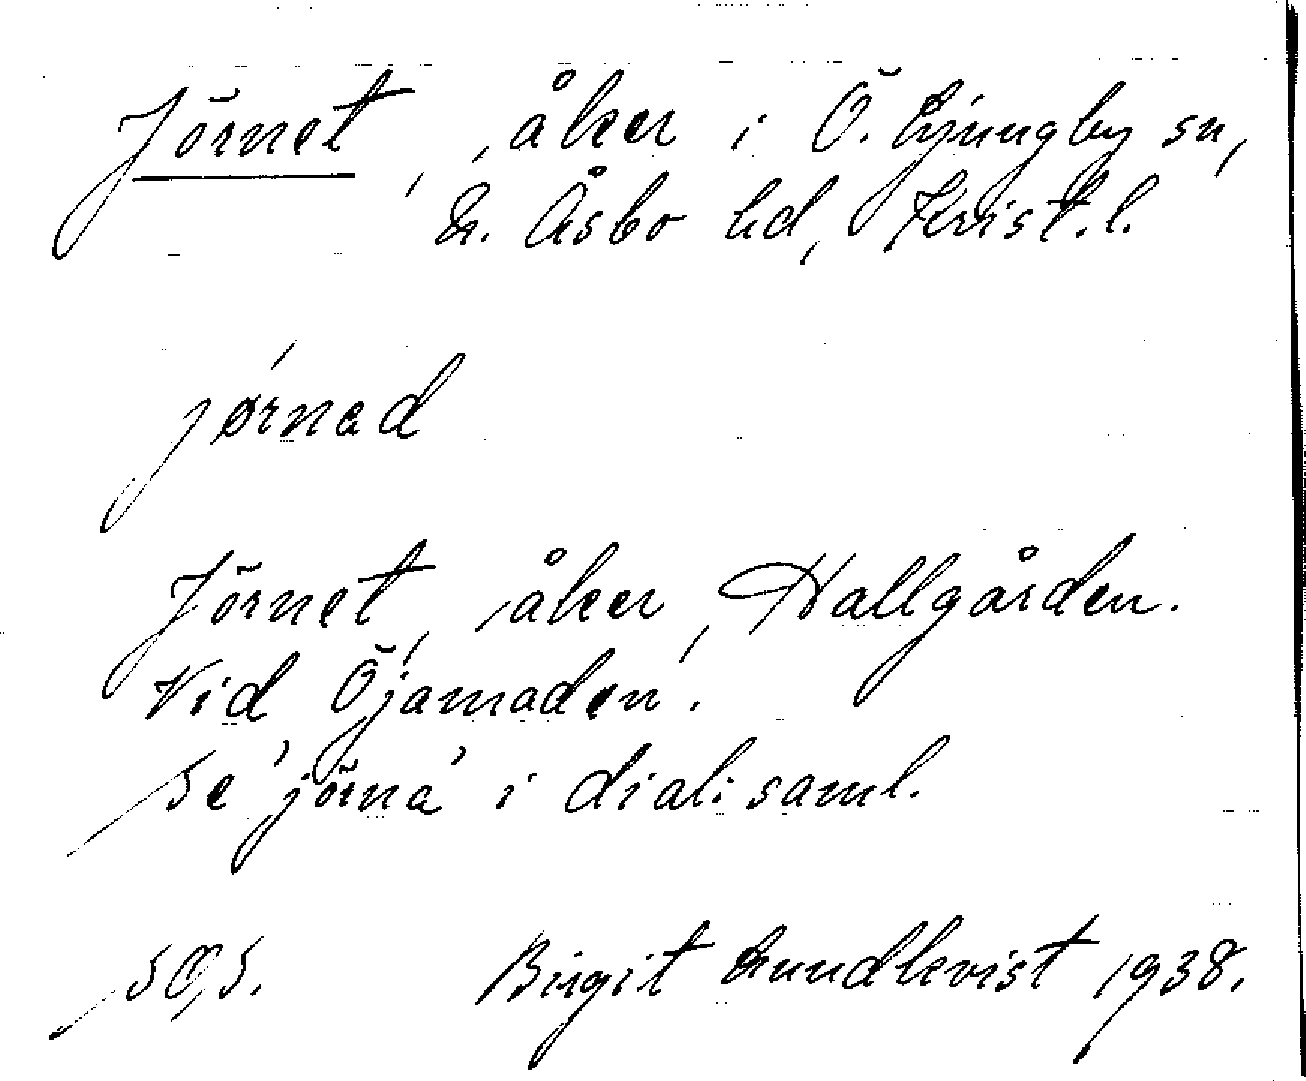 Jörnet, åker i Ö. Ljungby sn,
N. Åsbo hd, Krist. l.
jǿrnad
Jörnet, åker, Hallgården.
Vid Öjamaden.
Se 'jörna' i dial. saml.
Birgit Lundkvist 1938.